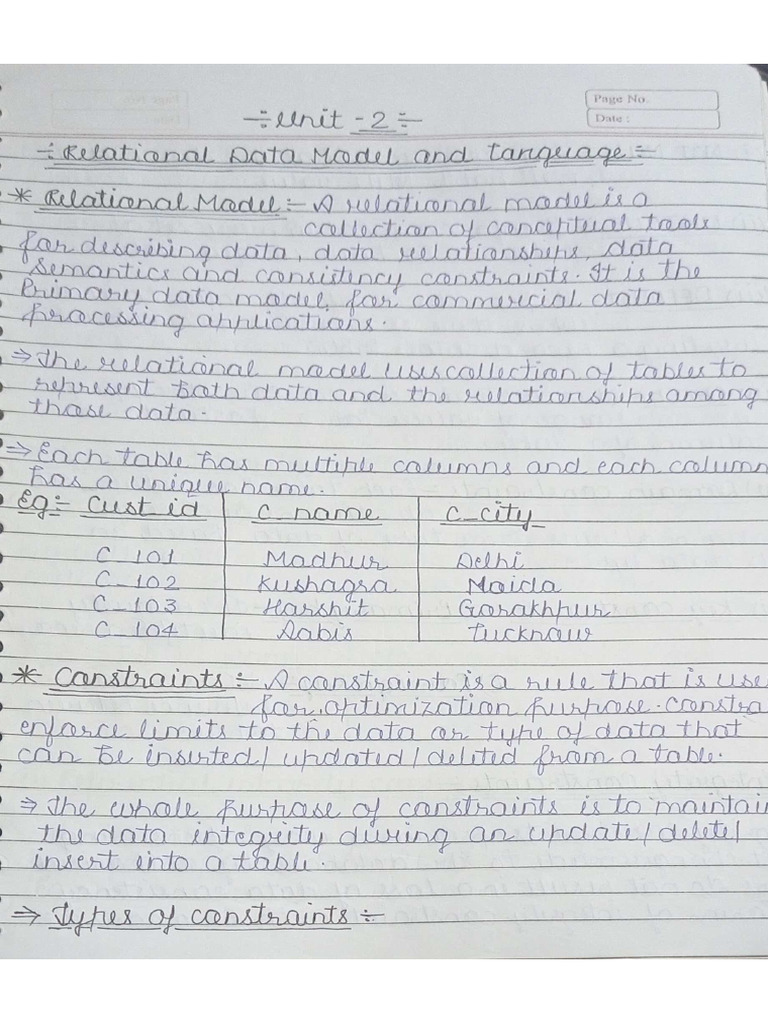 Page No.
Date :
÷ Unit - 2 ÷
÷ Relational Data Model and Language ÷
* Relational Model :- A relational model is a
collection of conceptual tools
for describing data, data relationships, data
semantics and consistency constraints. It is the
Primary data model for commercial data
processing applications.
⇒ The relational model uses collection of tables to
represent both data and the relationships among
those data.
⇒ Each table has multiple columns and each column
has a unique name.
Eg:- Cust id | C_name | C_city
C_101 | Madhur | Delhi
C_102 | Kushagra | Noida
C_103 | Harshit | Gorakhpur
C_104 | Aabis | Lucknow
* Constraints :- A constraint is a rule that is use
for optimization purpose. Constra
enforce limits to the data or type of data that
can be inserted / updated / deleted from a table.
⇒ The whole purpose of constraints is to maintai
the data integrity during an update / delete /
insert into a table.
⇒ Types of constraints ÷